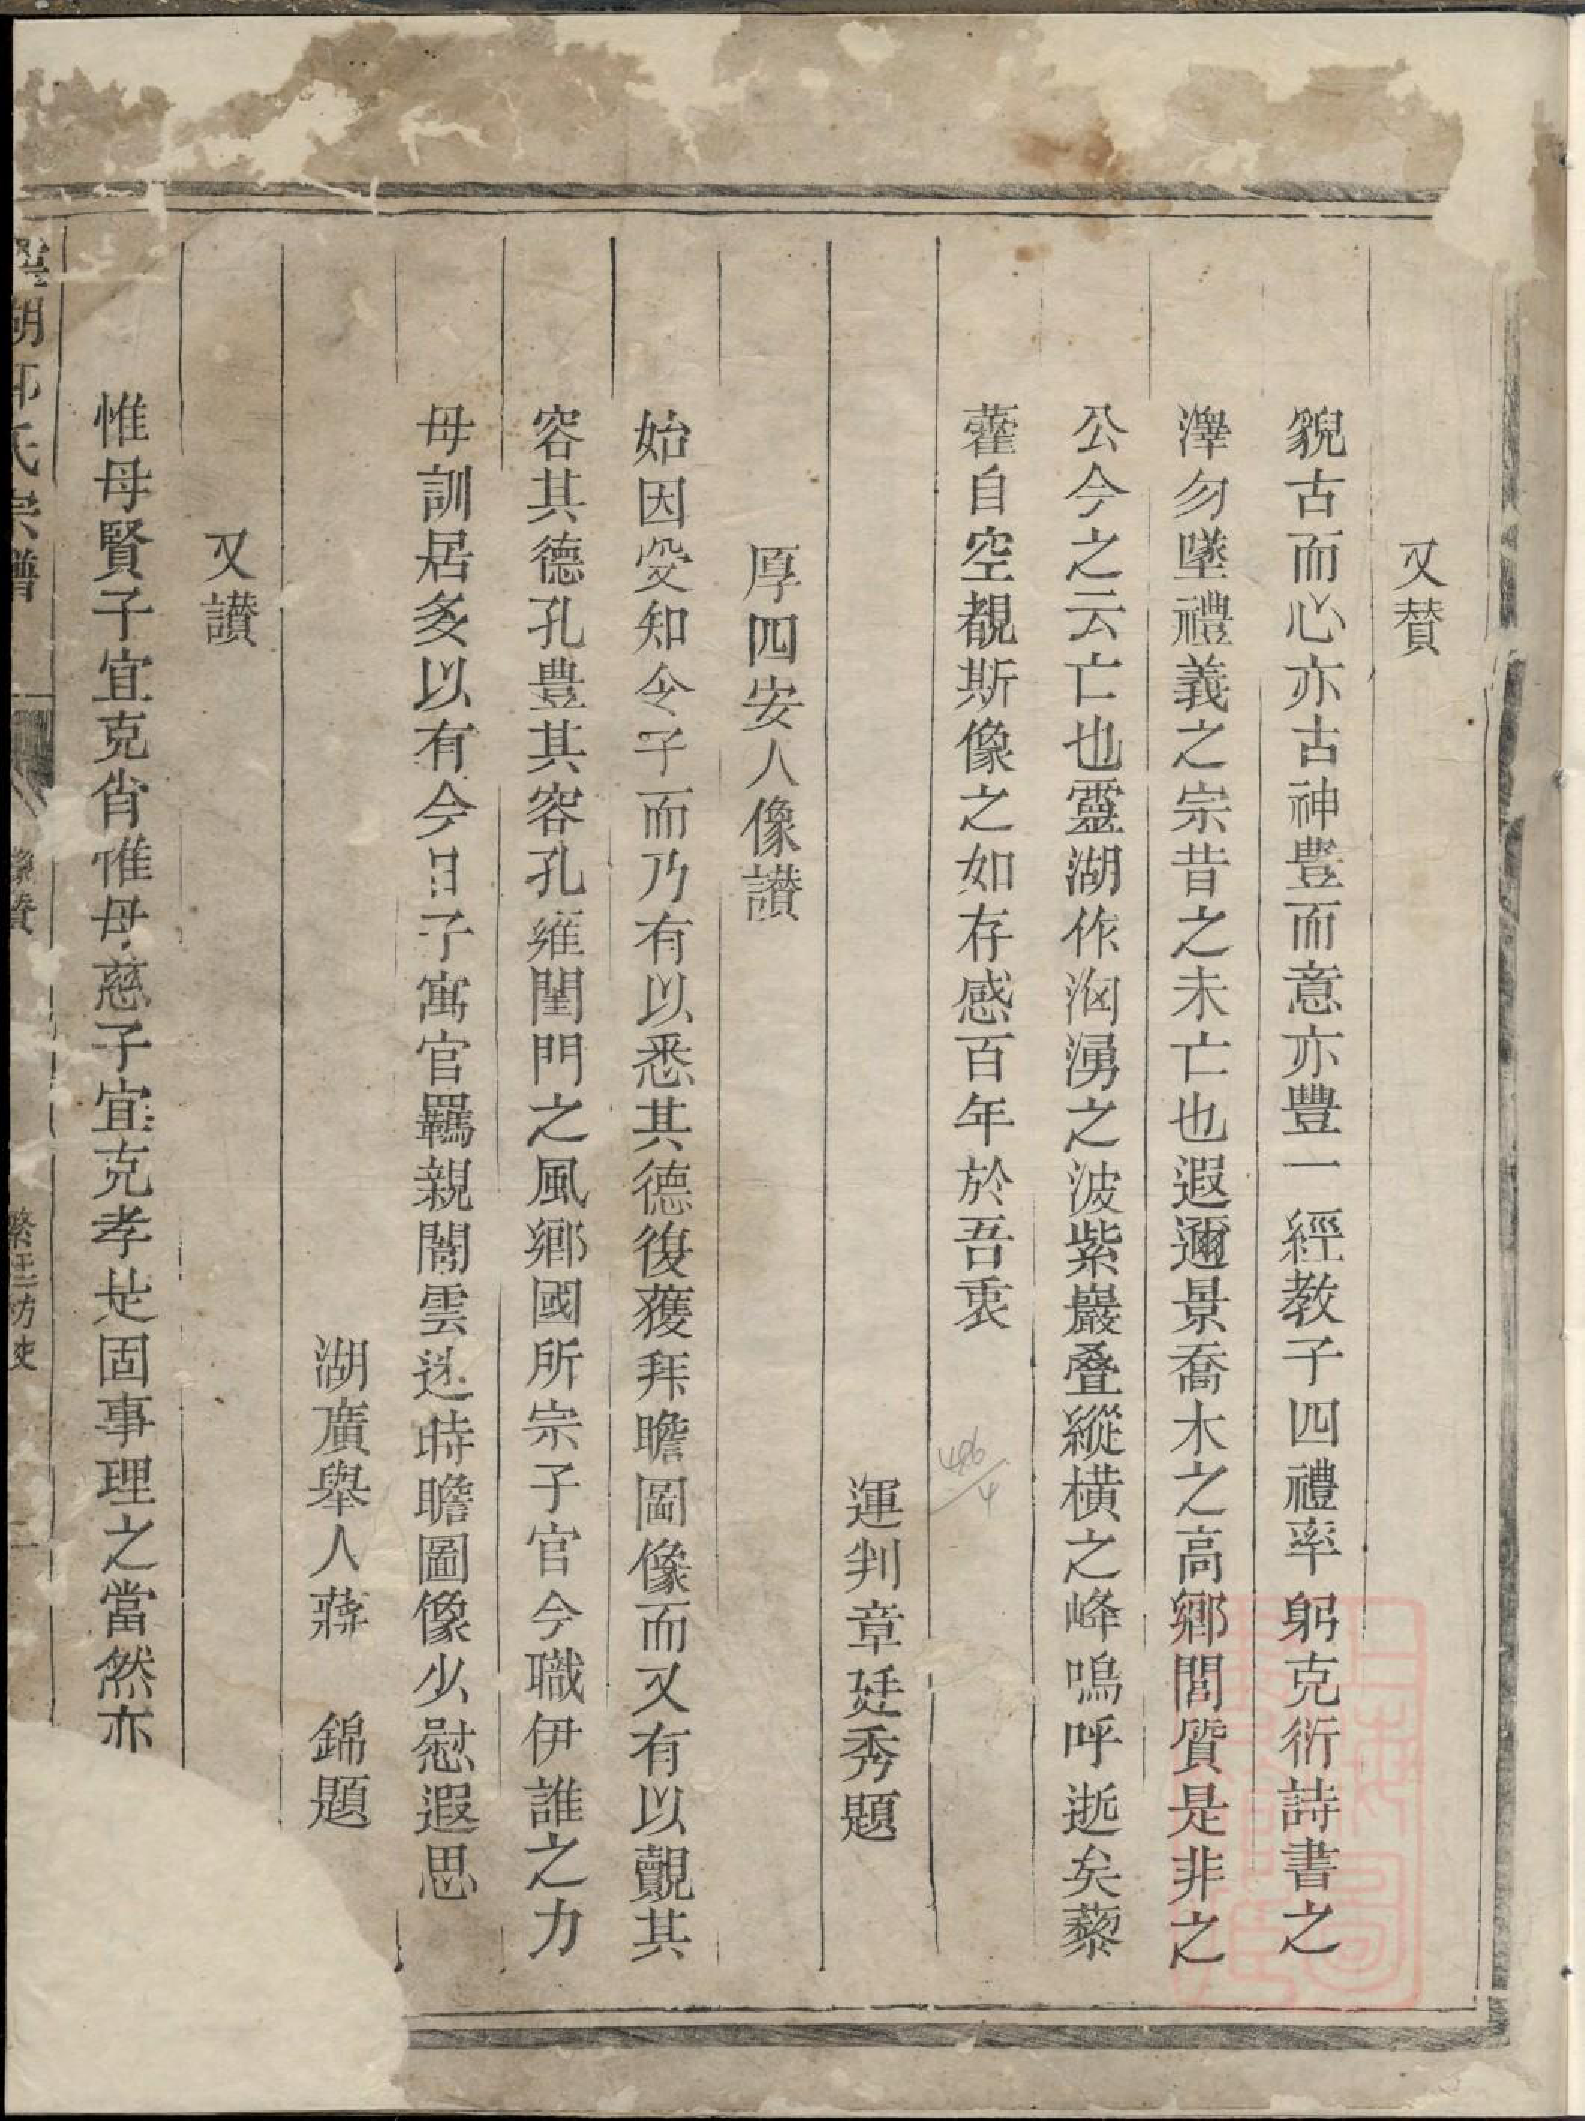 又賛
貌古而心亦古神豊而意亦豐一經教子四禮率躬克衍詩書之
澤勿墜禮義之宗昔之未亡也遐邇景喬木之高鄉閭質是非之
公今之云亡也靈湖作洶湧之波紫巖叠縱橫之峰嗚呼逝矣藜
藿自空覩斯像之如存感百年於吾衷
運判章廷秀題
厚四安人像讃
始因受知令子而乃有以悉其德復獲拜瞻圖像而又有以覿其
容其德孔豊其容孔雍閨門之風鄉國所宗子官今職伊誰之力
母訓居多以有今日子寓官羈親闈雲迷時瞻圖像少慰遐思
湖廣舉人蔣 錦題
又讃
惟母賢子宜克肖惟母慈子宜克孝是固事理之當然亦
湖 氏宗譜 像贊
426/4
上海圖書館藏